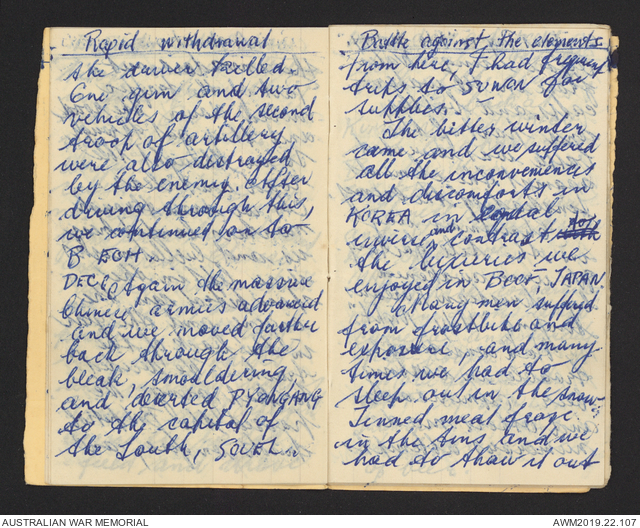 Rapid withdrawal
the driver killed.
One gun and two
vehicles of the second
troop of artillery
were also destroyed
by the enemy. After
driving through this,
we continued on to
B ECH
DEC. Again the massive
Chinese armies advanced
and we moved further
back through the
bleak, smouldering
and, deserted PYONGANG
to the capital of
the South, SOUEL.
Battle against, the elements
from here, I had frequent
trips to SUWON for
supplies.
The bitter winter
came and we suffered
all the inconveniences
and discomforts in
KOREA in
and contrast to
the luxuries we
enjoyed in BCOF, JAPAN
Many men suffered
from frostbite and
exposure, and many
times we had to
sleep out in the snow.
Tinned meat froze
in the tins and we
had to thaw it out
AUSTRALIAN WAR MEMORIAL
AWM2019.22.107